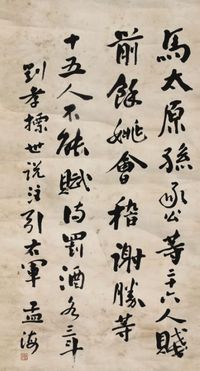 馬太原孫承公等二十六人賦
前餘姚會稽謝勝等
十五人不能賦詩罰酒各三斗
劉孝標世說注引右軍 孟海